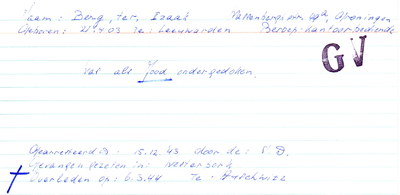 Naam: Berg, ter, Izaak Pallenbergstr. 49a, Groningen
Geboren: 21.4.03 te: Leeuwarden Beroep: Kantoorbediende
GV
Zat als Jood ondergedoken.
Gearresteerd: 15.12.43 door de: S.D.
Gevangen gezeten in: Westerbork
Overleden op: 6.3.44 te Auschwitz